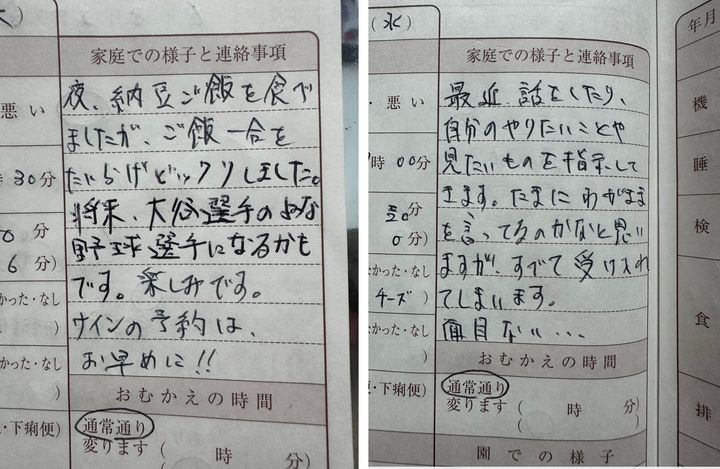 家庭での様子と連絡事項
悪い
夜、納豆ご飯を食べ
ましたが、ご飯一合を
たいらげビックリしました。
30分
将来、大谷選手のような
0分
野球選手になるかも
6分)
です。楽しみです。
かった・なし
サインの予約は、
)
お早めに!!
かった・なし
)
おむかえの時間
・下痢便)
通常通り
変ります( 時 分)
(水)
家庭での様子と連絡事項
・悪い
最近 話をしたり、
自分のやりたいことや
時00分
見たいものを指示して
きます。たまにわがまま
分
を言ってるのかなと思い
0分)
ますが、すべて受け入れ
なかった・なし
てしまいます。
チーズ)
面目ない...
かった・なし
)
おむかえの時間
便・下痢便)
通常通り
変ります( 時 分)
園での様子
年月
機
睡
検
食
排